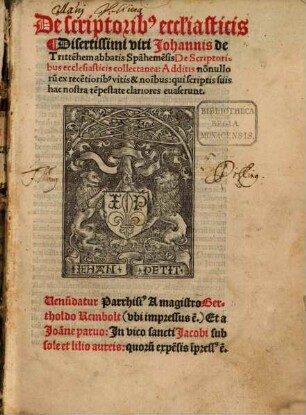 De scriptorib⁹ eccl̄iasticis
¶Disertissimi viri Johannis de
Trittēhem abbatis Spāhemēsis De Scriptori
bus ecclesiasticis collectanea: Additis nōnullo
rū ex recētiorib⁹ vitis & noībus: qui scriptis suis
hac nostra tēpestate clariores euaserunt.
BIBLIOTHECA
REGIA
MONACENSIS.
Polling.
IP
IEHAN PETIT
Uenūdatur Parrhisi⁹ A magistro Ber-
tholdo Rembolt (vbi impressus ē.) Et a
Joāne paruo: In vico sancti Jacobi sub
sole et lilio aureis: quorū expēsis īpress⁹ ē.